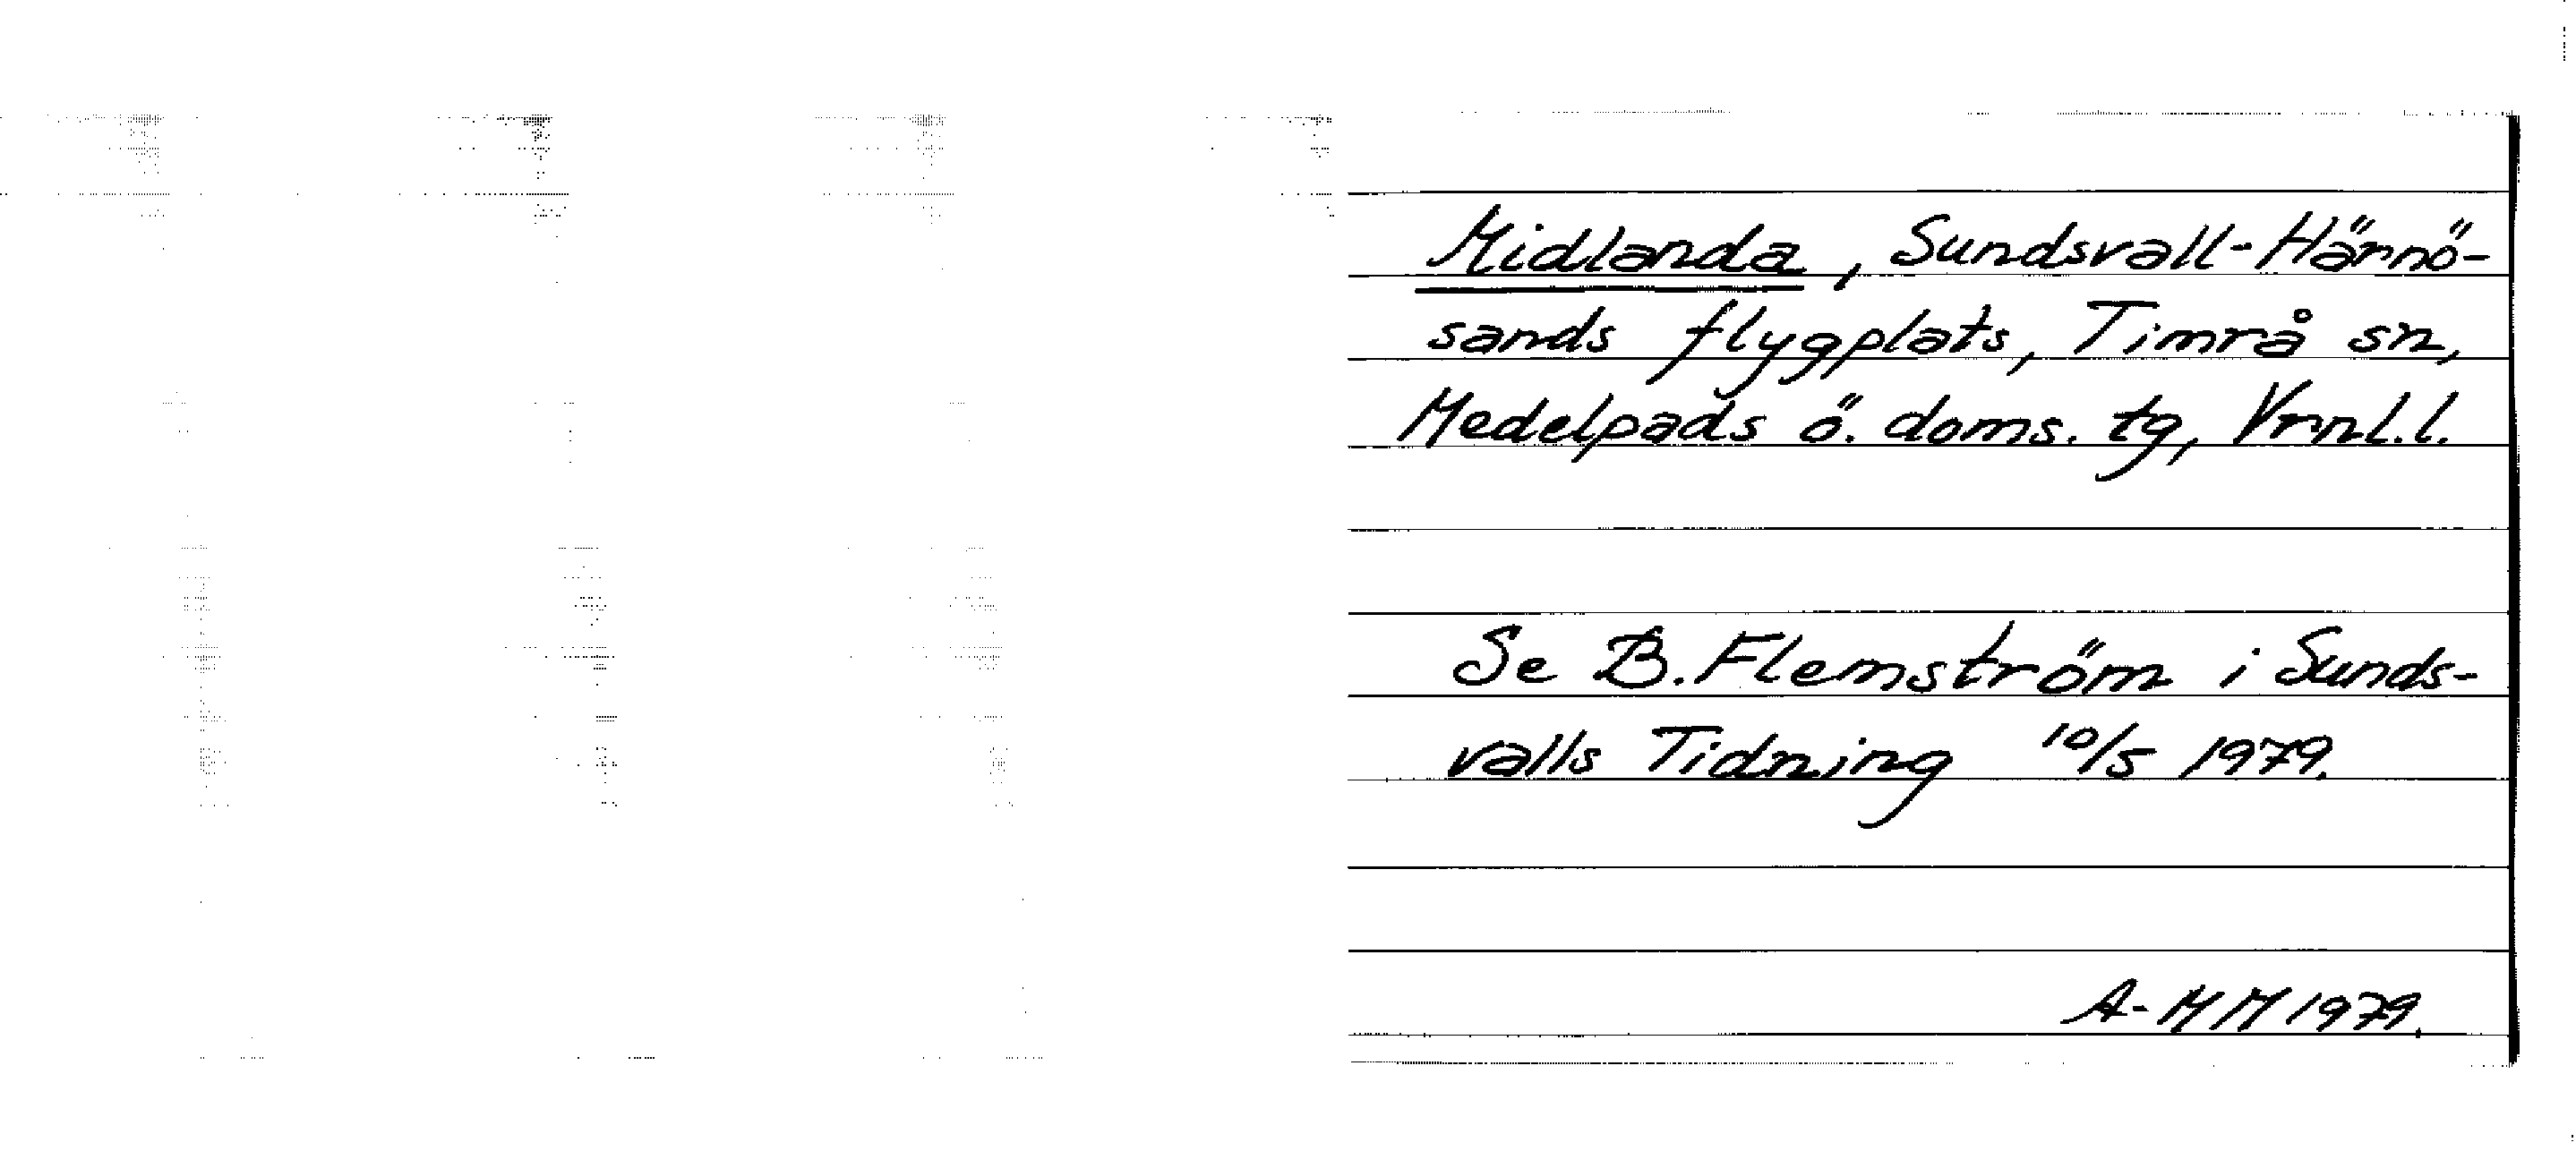 Midlanda, Sundsvall-Härnö-
sands flygplats, Timrå sn,
Medelpads ö. doms. tg, Vrnl.l.
Se B. Flemström i Sunds-
valls Tidning 10/5 1979.
A-MM 1979.